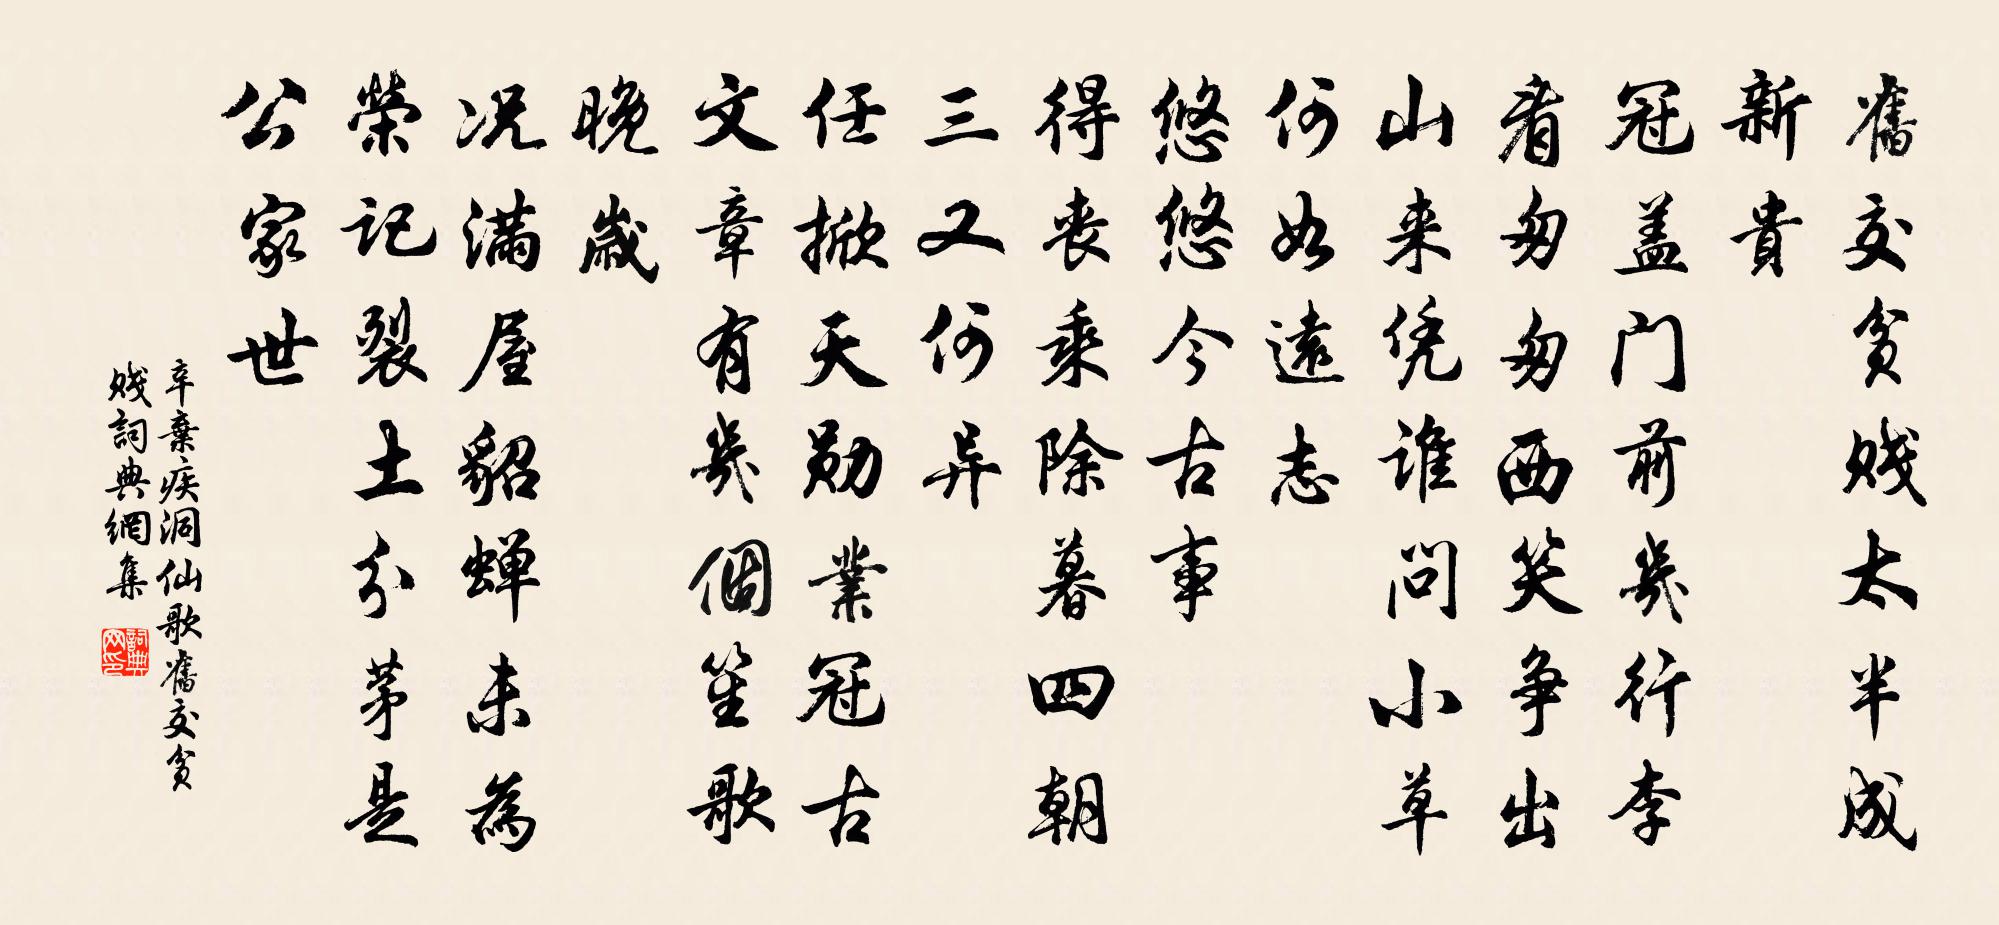 舊交贫贱太半成
新貴
冠盖门前幾行李
看匆匆西笑争出
山来凭谁问小草
何如遠志
悠悠今古事
得丧乘除暮四朝
三又何异
任掀天勋業冠古
文章有幾個笙歌
晚歲
况满屋貂蝉未為
榮记裂土分茅是
公家世
辛棄疾洞仙歌舊交贫
贱詞典網集
詞典网印